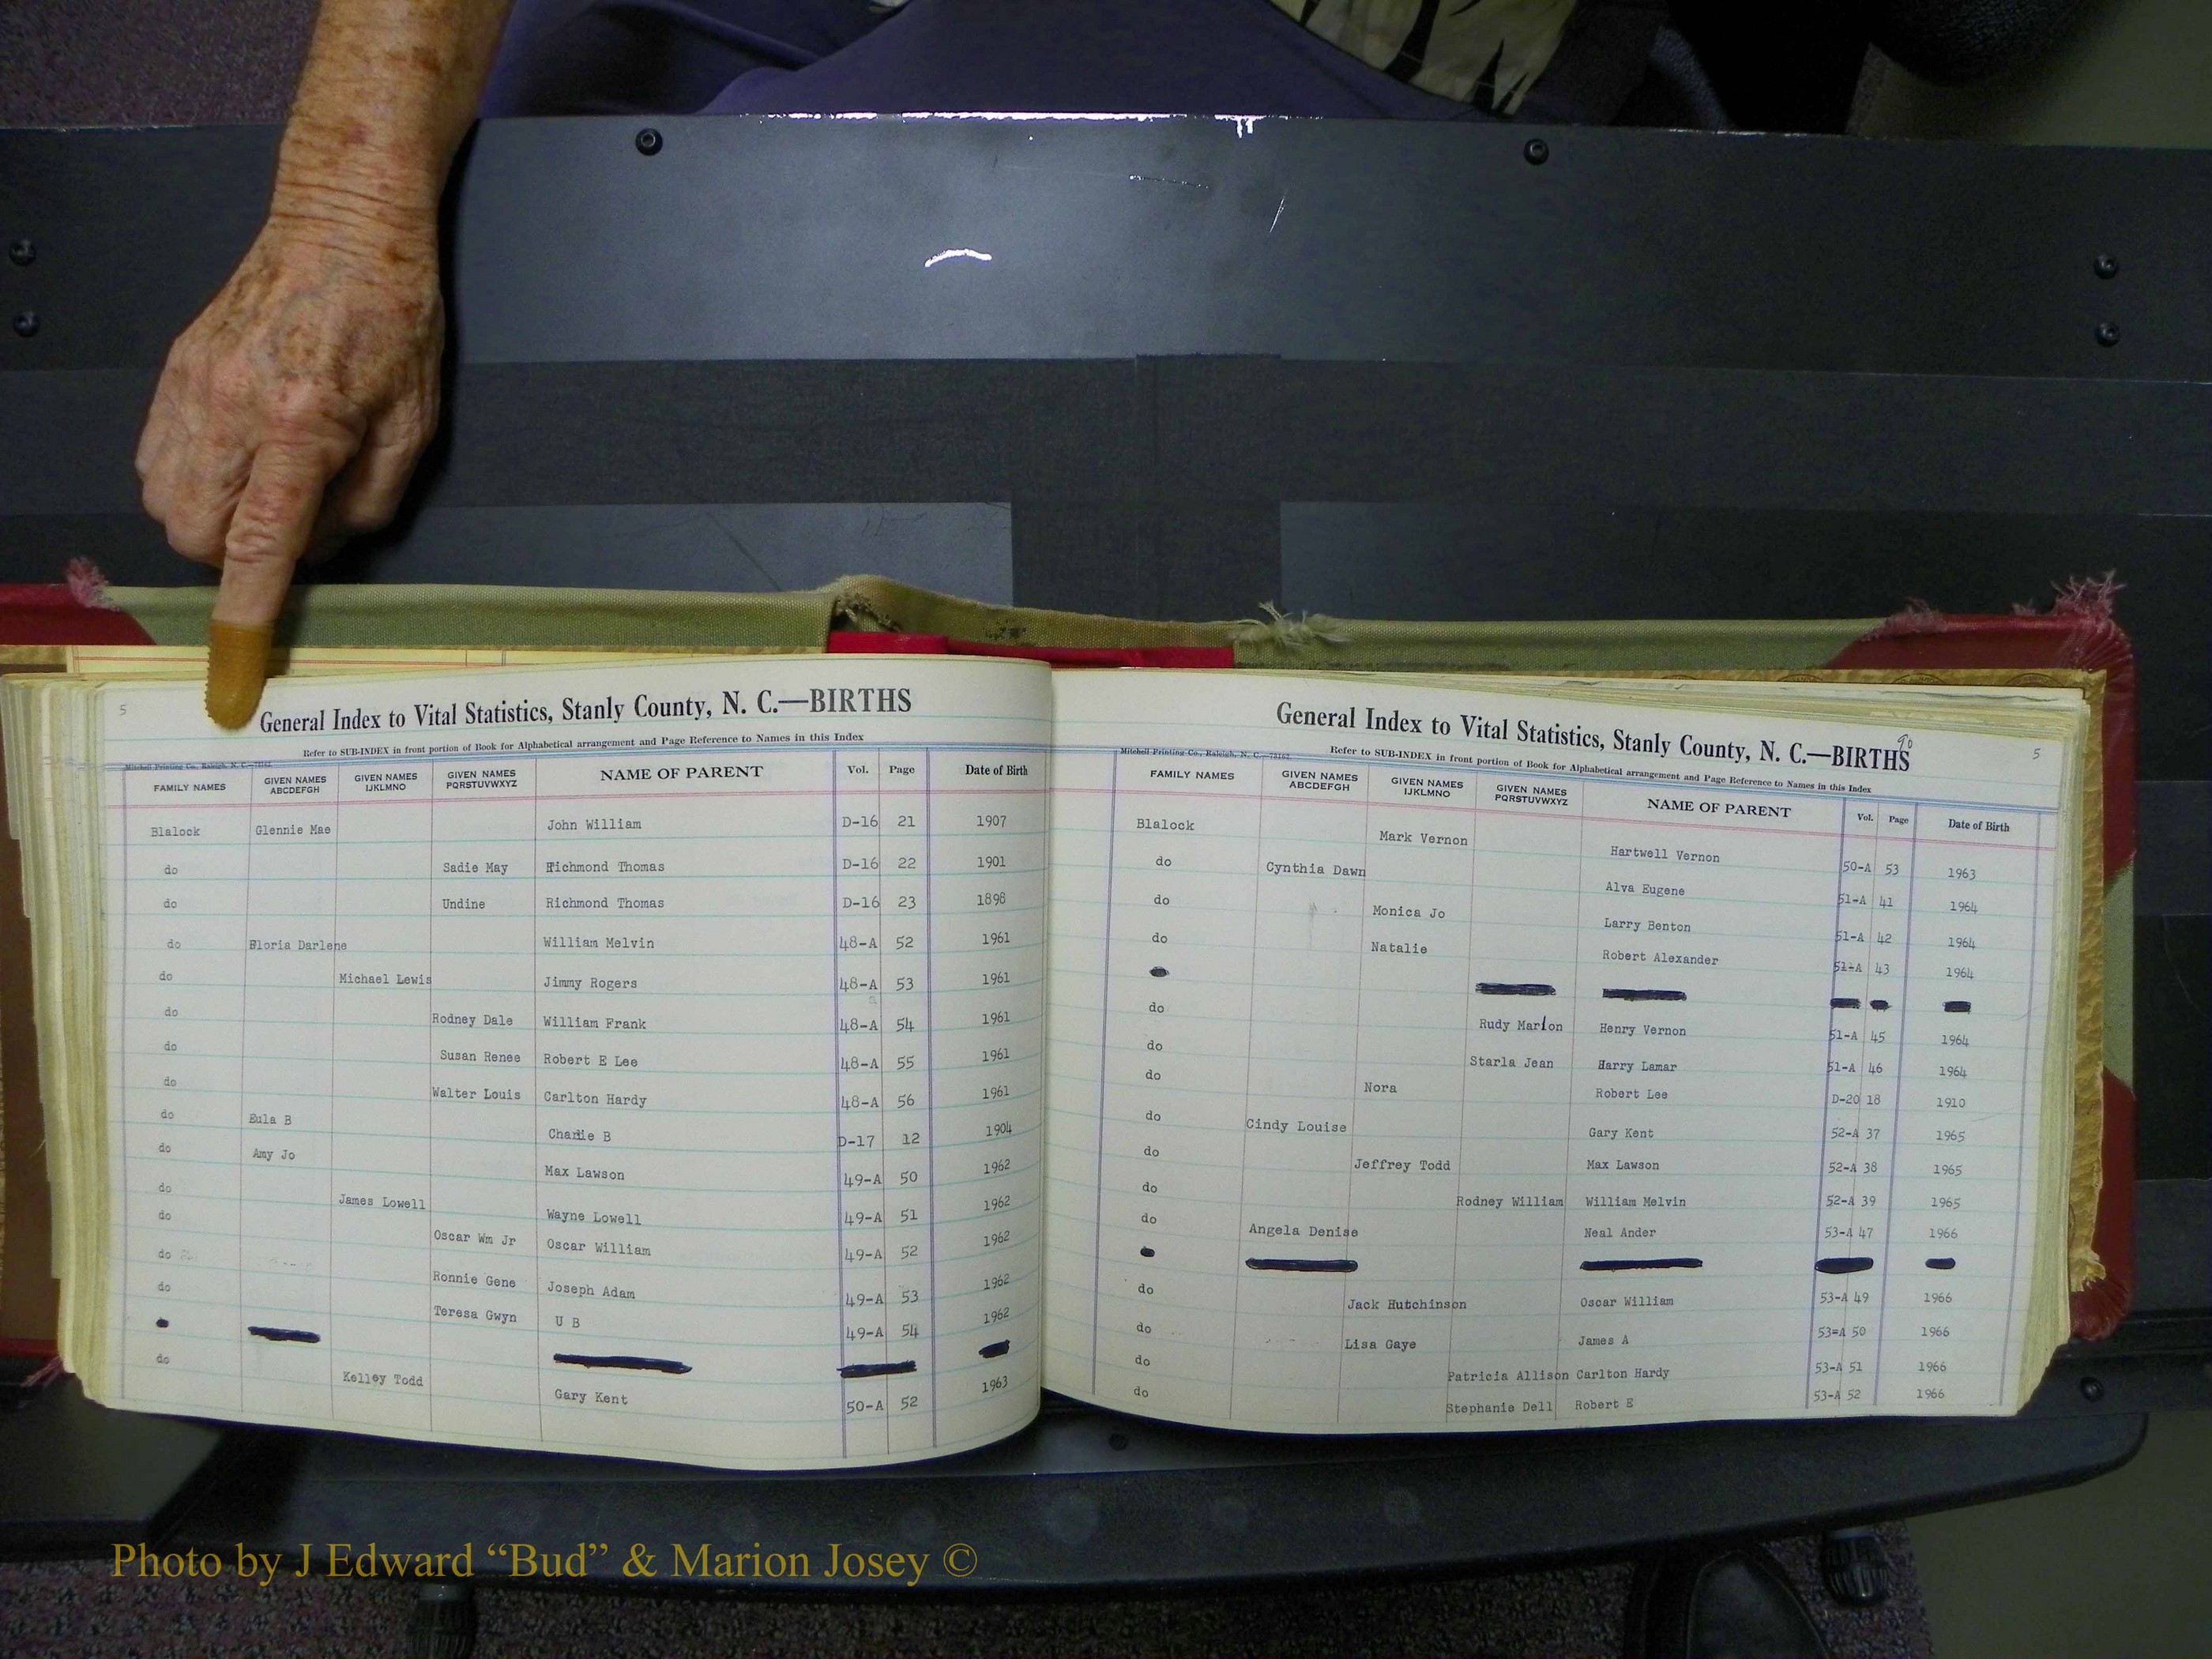 5
General Index to Vital Statistics, Stanly County, N. C.—BIRTHS
Refer to SUB-INDEX in front portion of Book for Alphabetical arrangement and Page Reference to Names in this Index
Mitchell Printing Co., Raleigh, N. C.
FAMILY NAMES GIVEN NAMES ABCDEFGH GIVEN NAMES IJKLMNO GIVEN NAMES PQRSTUVWXYZ NAME OF PARENT Vol. Page Date of Birth
Blalock Glennie Mae John William D-16 21 1907
do Sadie May Richmond Thomas D-16 22 1901
do Undine Richmond Thomas D-16 23 1898
do Gloria Darlene William Melvin 48-A 52 1961
do Michael Lewis Jimmy Rogers 48-A 53 1961
do Rodney Dale William Frank 48-A 54 1961
do Susan Renee Robert E Lee 48-A 55 1961
do Walter Louis Carlton Hardy 48-A 56 1961
do Eula B Charlie B D-17 12 1904
do Amy Jo Max Lawson 49-A 50 1962
do James Lowell Wayne Lowell 49-A 51 1962
do Oscar Wm Jr Oscar William 49-A 52 1962
do Ronnie Gene Joseph Adam 49-A 53 1962
do Teresa Gwyn U B 49-A 54 1962
do Kelley Todd Gary Kent 50-A 52 1963
90
5
General Index to Vital Statistics, Stanly County, N. C.—BIRTHS
Refer to SUB-INDEX in front portion of Book for Alphabetical arrangement and Page Reference to Names in this Index
Mitchell Printing Co., Raleigh, N. C.—78162
FAMILY NAMES GIVEN NAMES ABCDEFGH GIVEN NAMES IJKLMNO GIVEN NAMES PQRSTUVWXYZ NAME OF PARENT Vol. Page Date of Birth
Blalock Mark Vernon Hartwell Vernon 50-A 53 1963
do Cynthia Dawn Alva Eugene 51-A 41 1964
do Monica Jo Larry Benton 51-A 42 1964
do Natalie Robert Alexander 51-A 43 1964
do Rudy Marion Henry Vernon 51-A 45 1964
do Starla Jean Harry Lamar 51-A 46 1964
do Nora Robert Lee D-20 18 1910
do Cindy Louise Gary Kent 52-A 37 1965
do Jeffrey Todd Max Lawson 52-A 38 1965
do Rodney William William Melvin 52-A 39 1965
do Angela Denise Neal Ander 53-A 47 1966
do Jack Hutchinson Oscar William 53-A 49 1966
do Lisa Gaye James A 53=A 50 1966
do Patricia Allison Carlton Hardy 53-A 51 1966
do Stephanie Dell Robert E 53-A 52 1966
Photo by J Edward “Bud” & Marion Josey ©